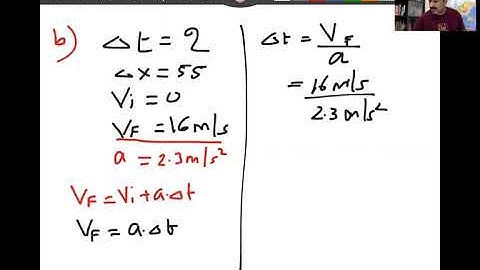 b)
Δt = 2
Δx = 55
Vi = 0
VF = 16 m/s
a = 2.3 m/s²
VF = Vi + a.Δt
VF = a.Δt
Δt = VF/a
= 16 m/s / 2.3 m/s²